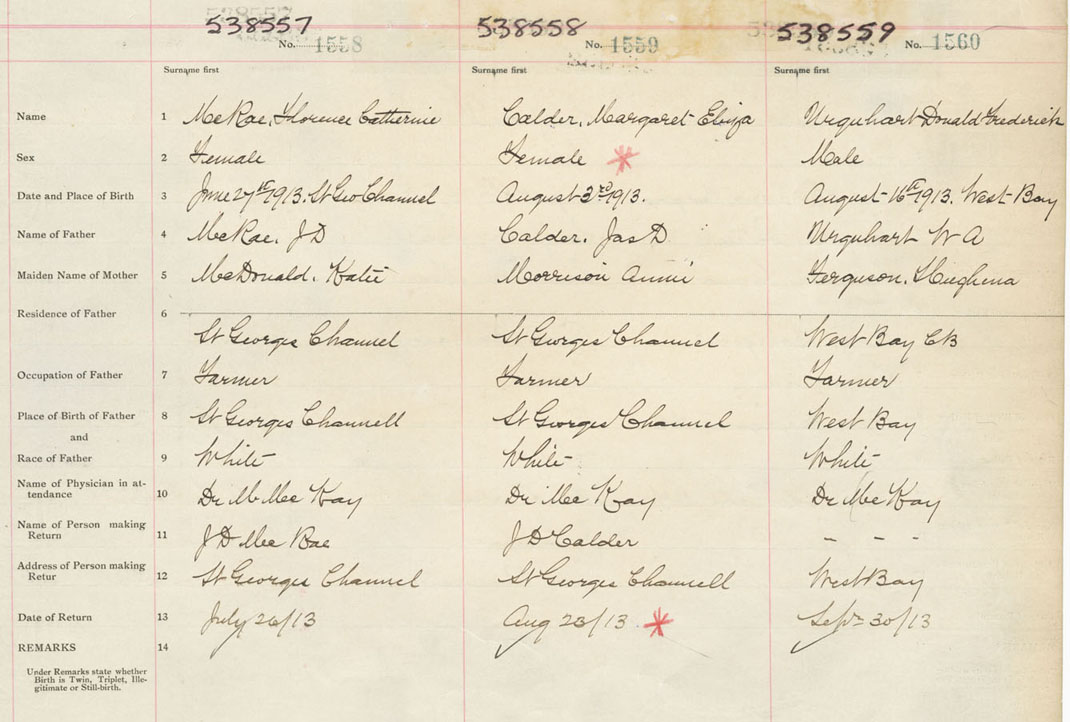 538557 538558 538559
No. 1558 No. 1559 No. 1560
Surname first Surname first Surname first
Name 1 McRae, Florence Catherine Calder, Margaret Eloiza Urquhart Donald Frederick
Sex 2 Female Female * Male
Date and Place of Birth 3 June 27th 1913. St Geo Channel August 3rd 1913. August 16th 1913. West Bay
Name of Father 4 McRae, J D Calder. Jas D. Urquhart W A
Maiden Name of Mother 5 McDonald. Katie Morrison Annie Ferguson. Hughena
Residence of Father 6
St Georges Channel St Georges Channel West Bay CB
Occupation of Father 7 Farmer Farmer Farmer
Place of Birth of Father 8 St Georges Channell St Georges Channel West Bay
and
Race of Father 9 White White White
Name of Physician in at-
tendance 10 Dr M McKay Dr McKay Dr McKay
Name of Person making
Return 11 J D McRae J D Calder - - -
Address of Person making
Retur 12 St Georges Channel St Georges Channell West Bay
Date of Return 13 July 26/13 Aug 23/13 * Sept 30/13
REMARKS 14
Under Remarks state whether
Birth is Twin, Triplet, Ille-
gitimate or Still-birth.